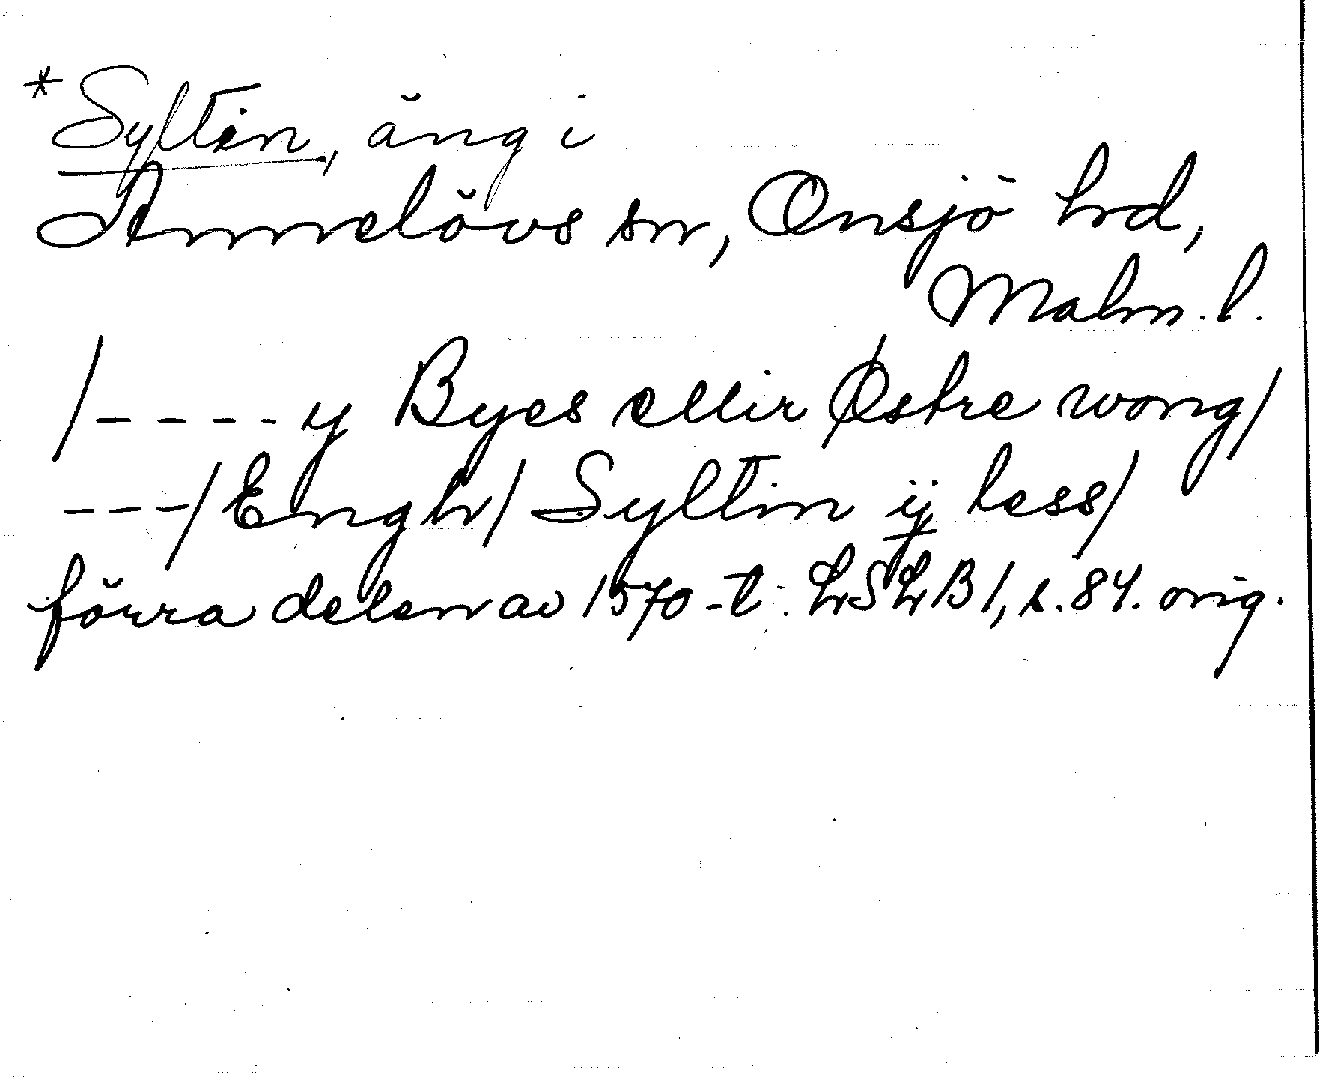 *Syltin, äng i
Annelövs sn, Onsjö hrd,
Malm. l.
/- - - - y Byes ellir Østre wong/
- - -/Engh/ Syltin ij less/
förra delen av 1570-t. LSLB 1, s. 84. orig.